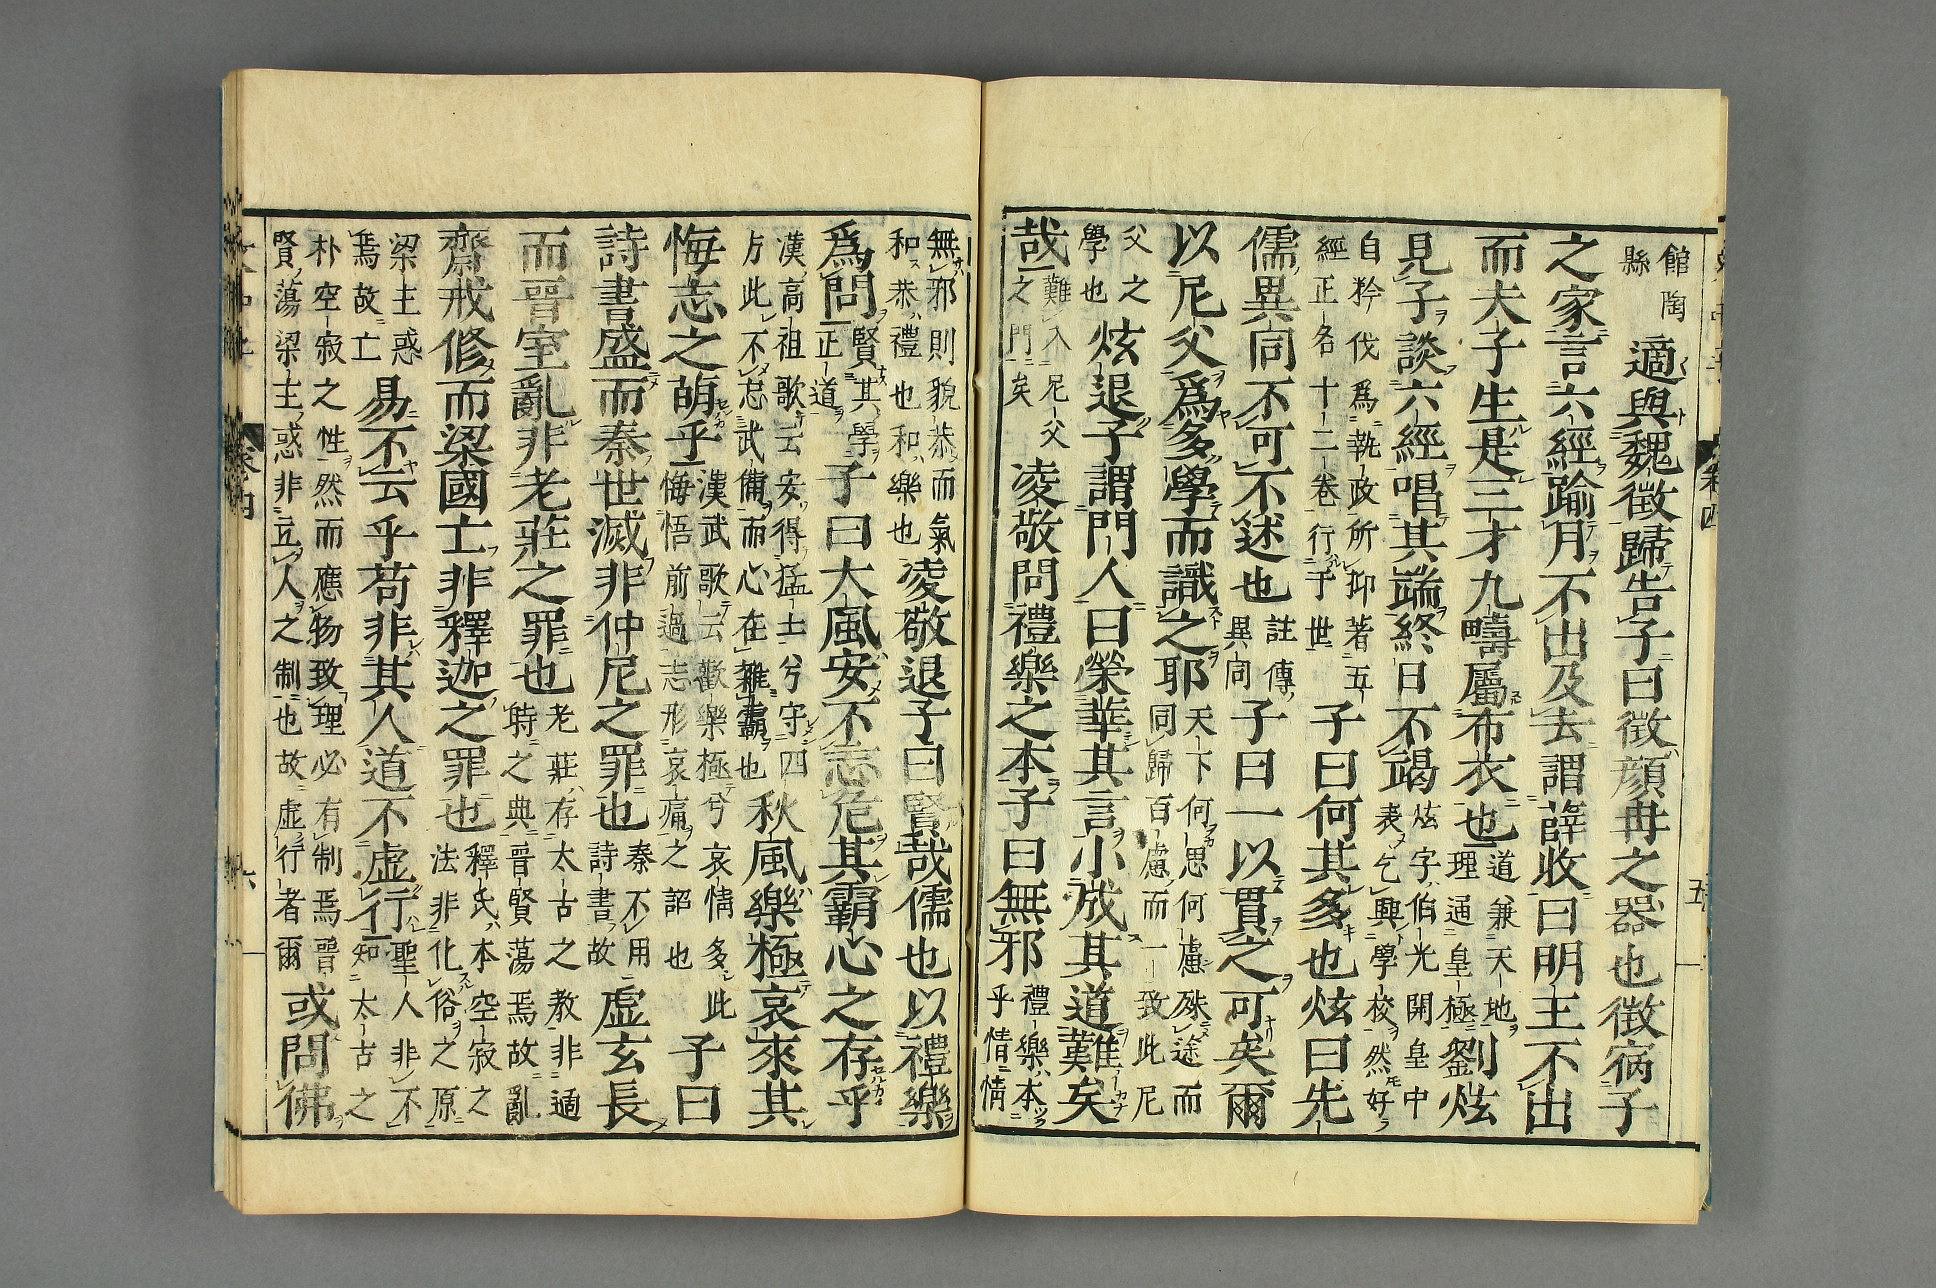 館陶縣適與魏徵歸告子曰徵顔冉之器也徵宿子
之家言六經踰月不出及去謂薛收曰明王不出
而夫子生是三才九疇屬布衣也道兼天地理通皇極劉炫
見子談六經唱其端終日不竭炫字伯光開皇中表乞興學校然好
自矜伐爲執政所抑著五經正名十二卷行于世子曰何其多也炫曰先
儒異同不可不述也註傳異同子曰一以貫之可矣爾
以尼父爲多學而識之耶天下何思何慮殊途而同歸百慮而一致此尼
父之學也炫退子謂門人曰榮華其言小成其道難矣
哉難入尼父之門矣凌敬問禮樂之本子曰無邪禮樂本乎情情
無邪則貌恭而氣和恭禮也和樂也凌敬退子曰賢哉儒也以禮樂
爲問賢其學正道子曰大風安不忘危其霸心之存乎
漢高祖歌云安得猛士兮守四方此不忘武備而心在雜霸也秋風樂極哀來其
悔志之萌乎漢武歌云歡樂極兮哀情多此悔悟前過志形哀痛之詔也子曰
詩書盛而秦世滅非仲尼之罪也秦不用詩書故虚玄長
而晉室亂非老莊之罪也老莊存太古之教非適時之典晉賢蕩焉故亂
齋戒修而梁國士非釋迦之罪也釋氏本空寂之法非化俗之原
梁主惑焉故亡易不云乎苟非其人道不虚行聖人非不知太古之
朴空寂之性然而應物致理必有制焉晉賢蕩梁主惑非立人之制也故虚行者爾或問佛